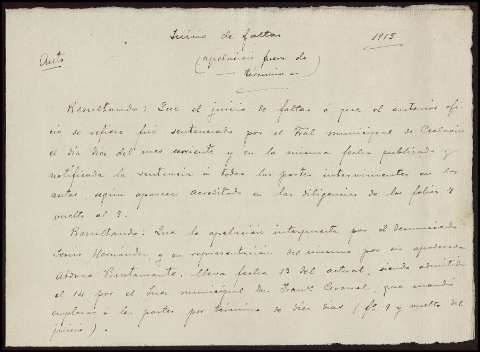 Juicio de faltas 1913
Auto (apelacion fuera de
termino)
Resultando: Que el juicio de faltas á que el anterior ofi
cio se refiere fué sentenciado por el Tral municipal de
el día dos del mes corriente y en la misma fecha publicada y
notificada la sentencia á todas las partes intervinientes en los
autos, según aparece acreditado en las diligencias de los folios 7
vuelto al 9.
Resultando: Que la apelación interpuesta por el denunciado
Hernández y en representación del mismo por su apoderado
Bustamante, lleva fecha 13 del actual, siendo admitida
el 14 por el Juez municipal Dn. que mandó
emplazar á las partes por término de diez dias (fº 9 y vuelto del
juicio).